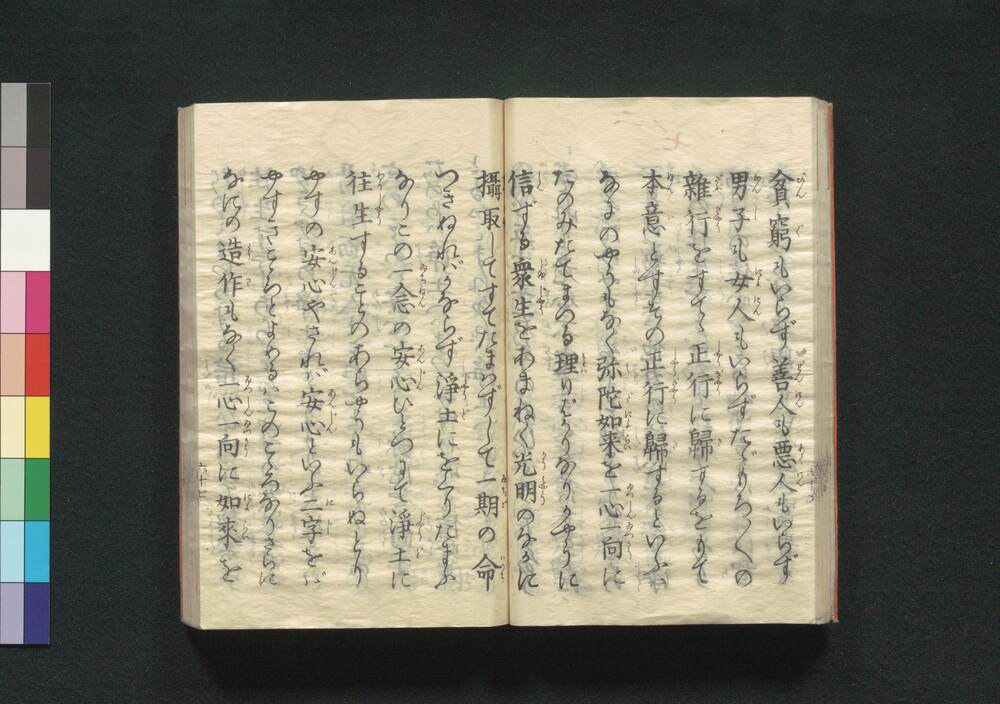 貧窮もいらず善人も悪人もいらず
男子も女人もいらずたゞもろ〳〵の
雜行をすて正行に歸するをもて
本意とすその正行に歸するといふハ
なにのやうもなく弥陀如来を一心一向に
たのみたてまつる理りばかりなりかやうに
信ずる衆生をあまねく光明のなかに
攝取してすてたまはずして一期の命
つきぬれバかならず淨土にをくりたまふ
なりこの一念の安心ひとつにて淨土に
往生することのあらやうもいらぬとり
やすの安心やされバ安心といふ二字をバ
やすきこゝろとよめるハこのこゝろなりさらに
なにの造作もなく一心一向に如來を